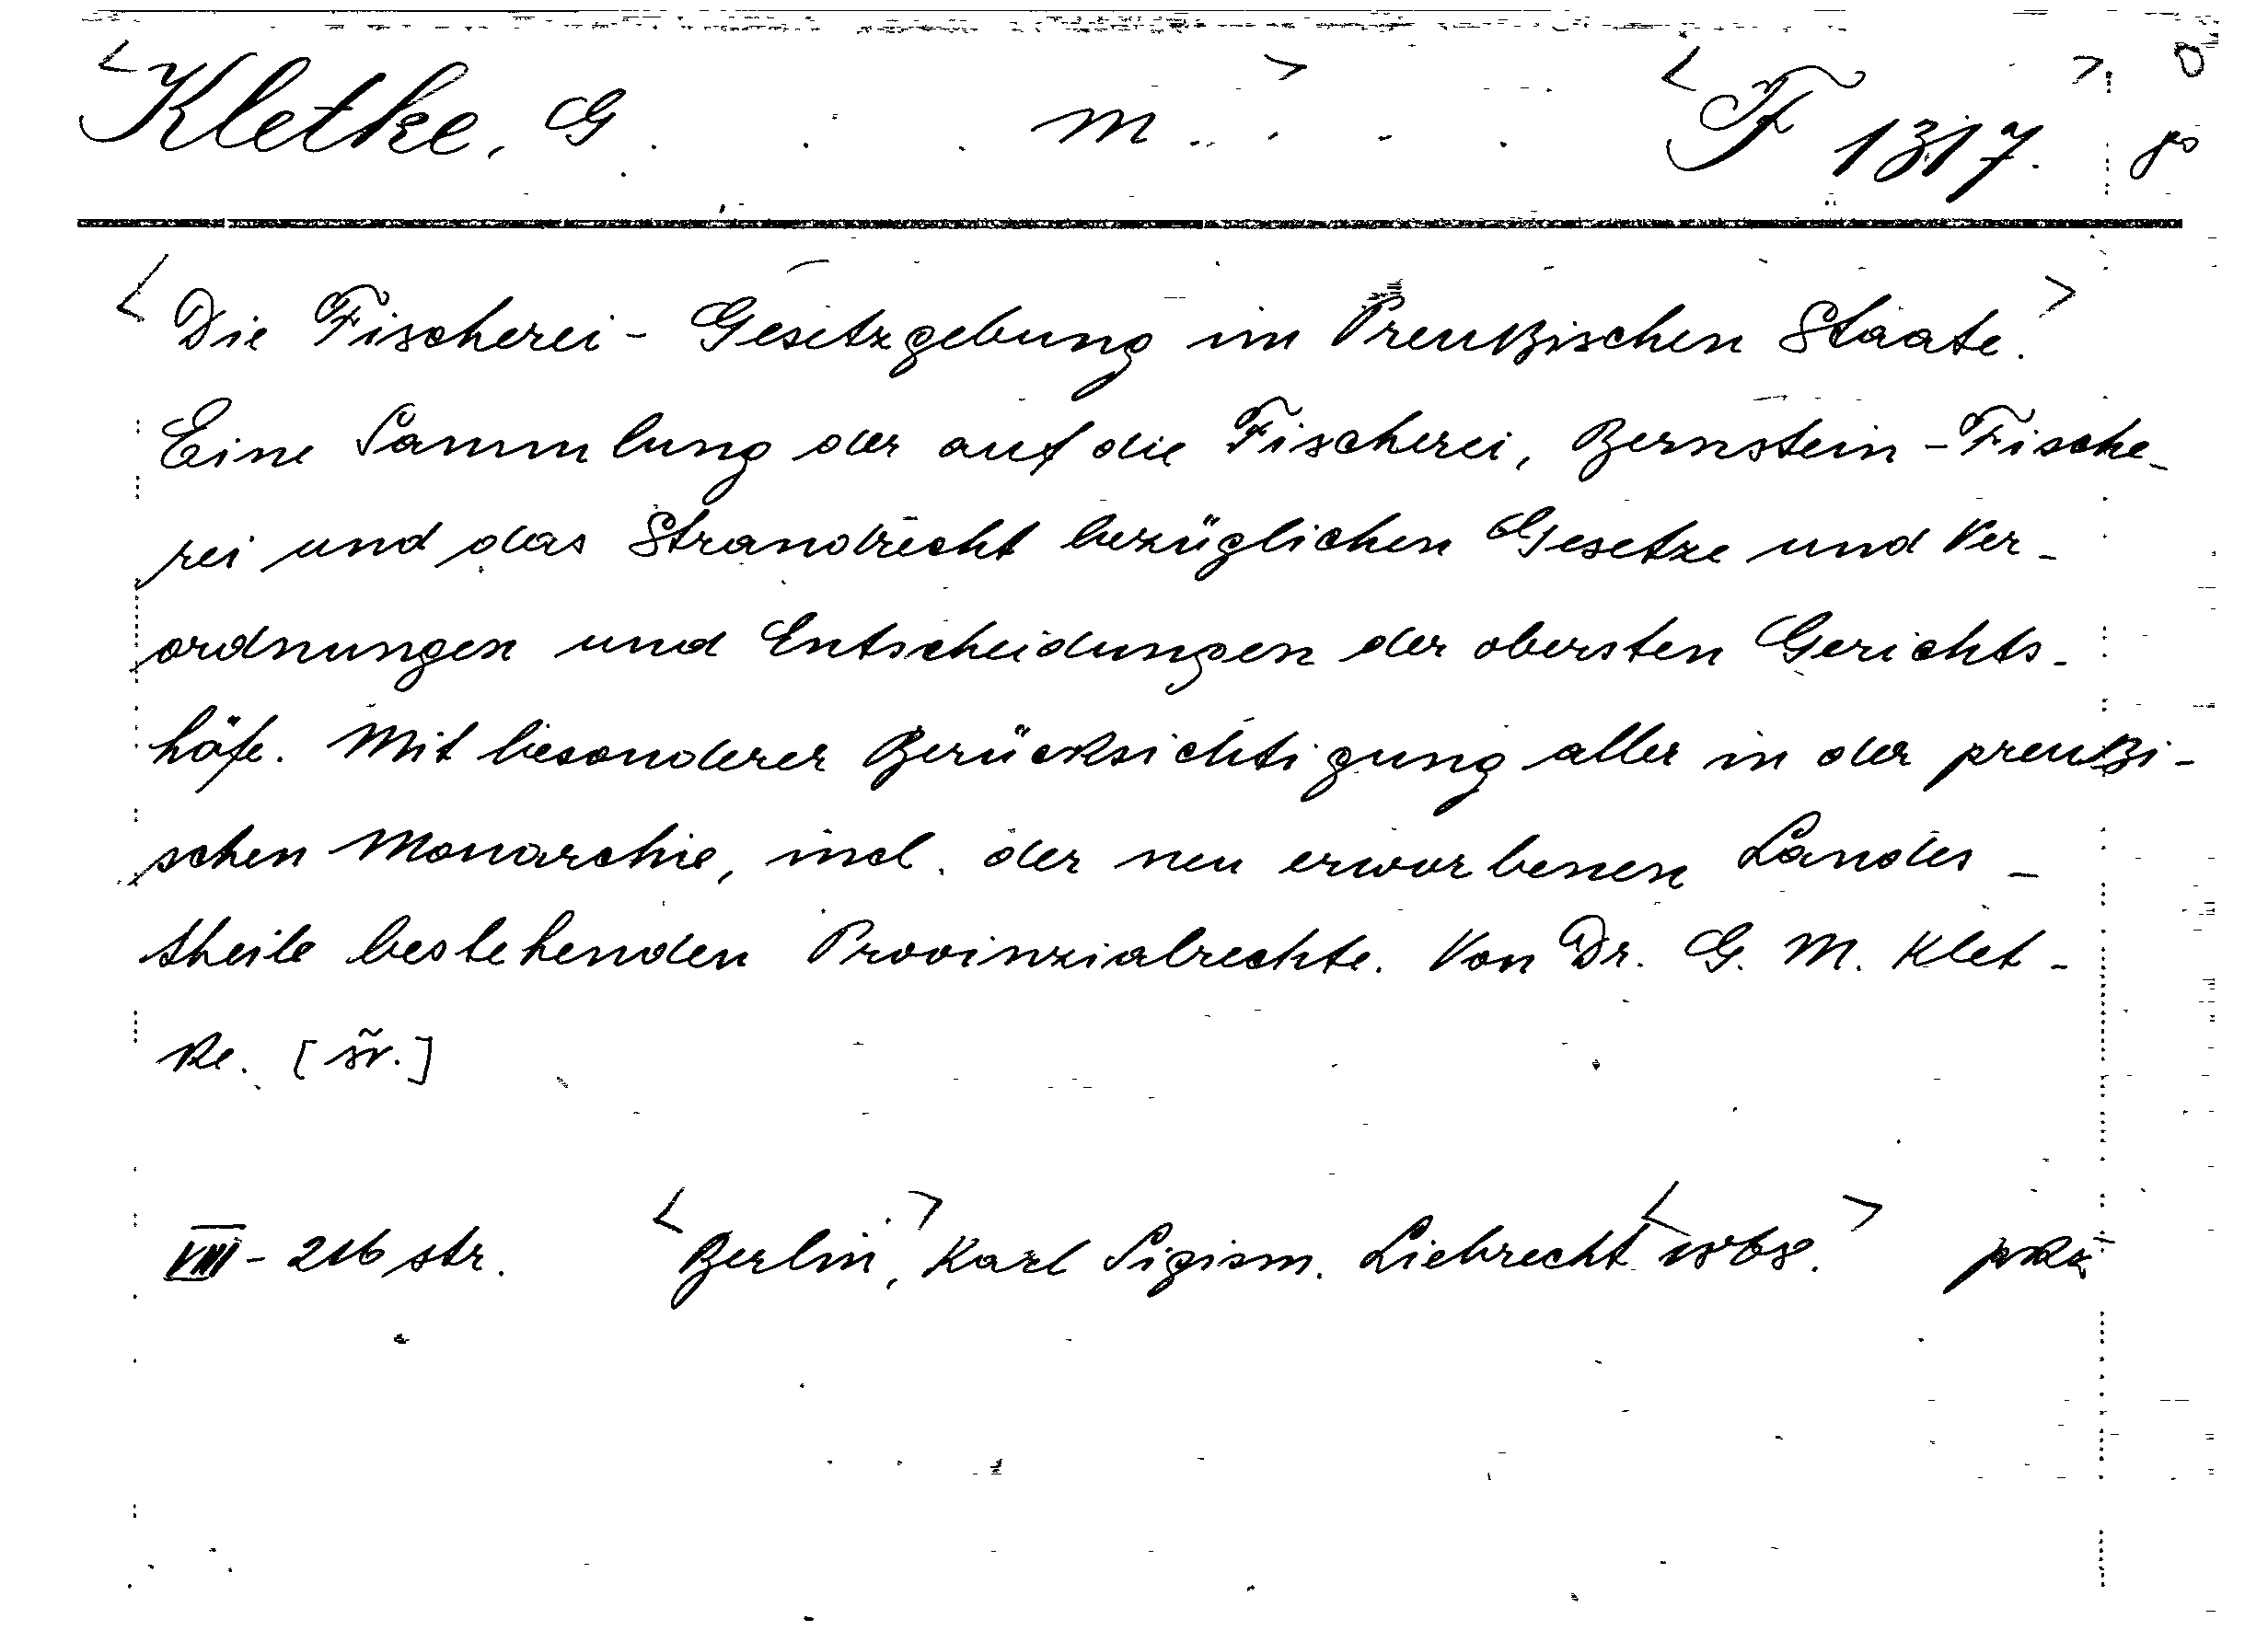 <Kletke, G. M.> <F 1317.>
<Die Fischerei-Gesetzgebung im Preußischen Staate.>
Eine Sammlung der auf die Fischerei, Bernstein-Fische-
rei und das Strandrecht bezüglichen Gesetze und Ver-
ordnungen und Entscheidungen der obersten Gerichts-
höfe. Mit besonderer Berücksichtigung aller in der preußi-
schen Monarchie, incl. der neu erworbenen Landes-
theile bestehenden Provinzialrechte. Von Dr. G. M. Klet-
ke. [šv.]
VIII-216 str. <Berlin,> Karl Sigism. Liebrecht <1868.>